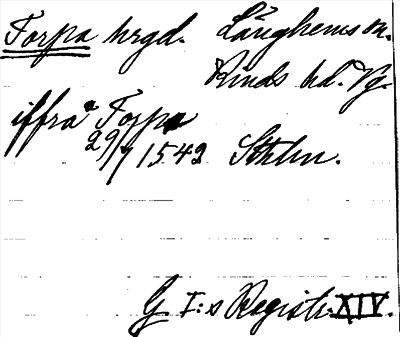 Torpa hrgd. Långhems sn.
Kinds hd. Vg.
iffrå Torpa
29/7 1542 Sthlm.
G I:s Registr. XIV.